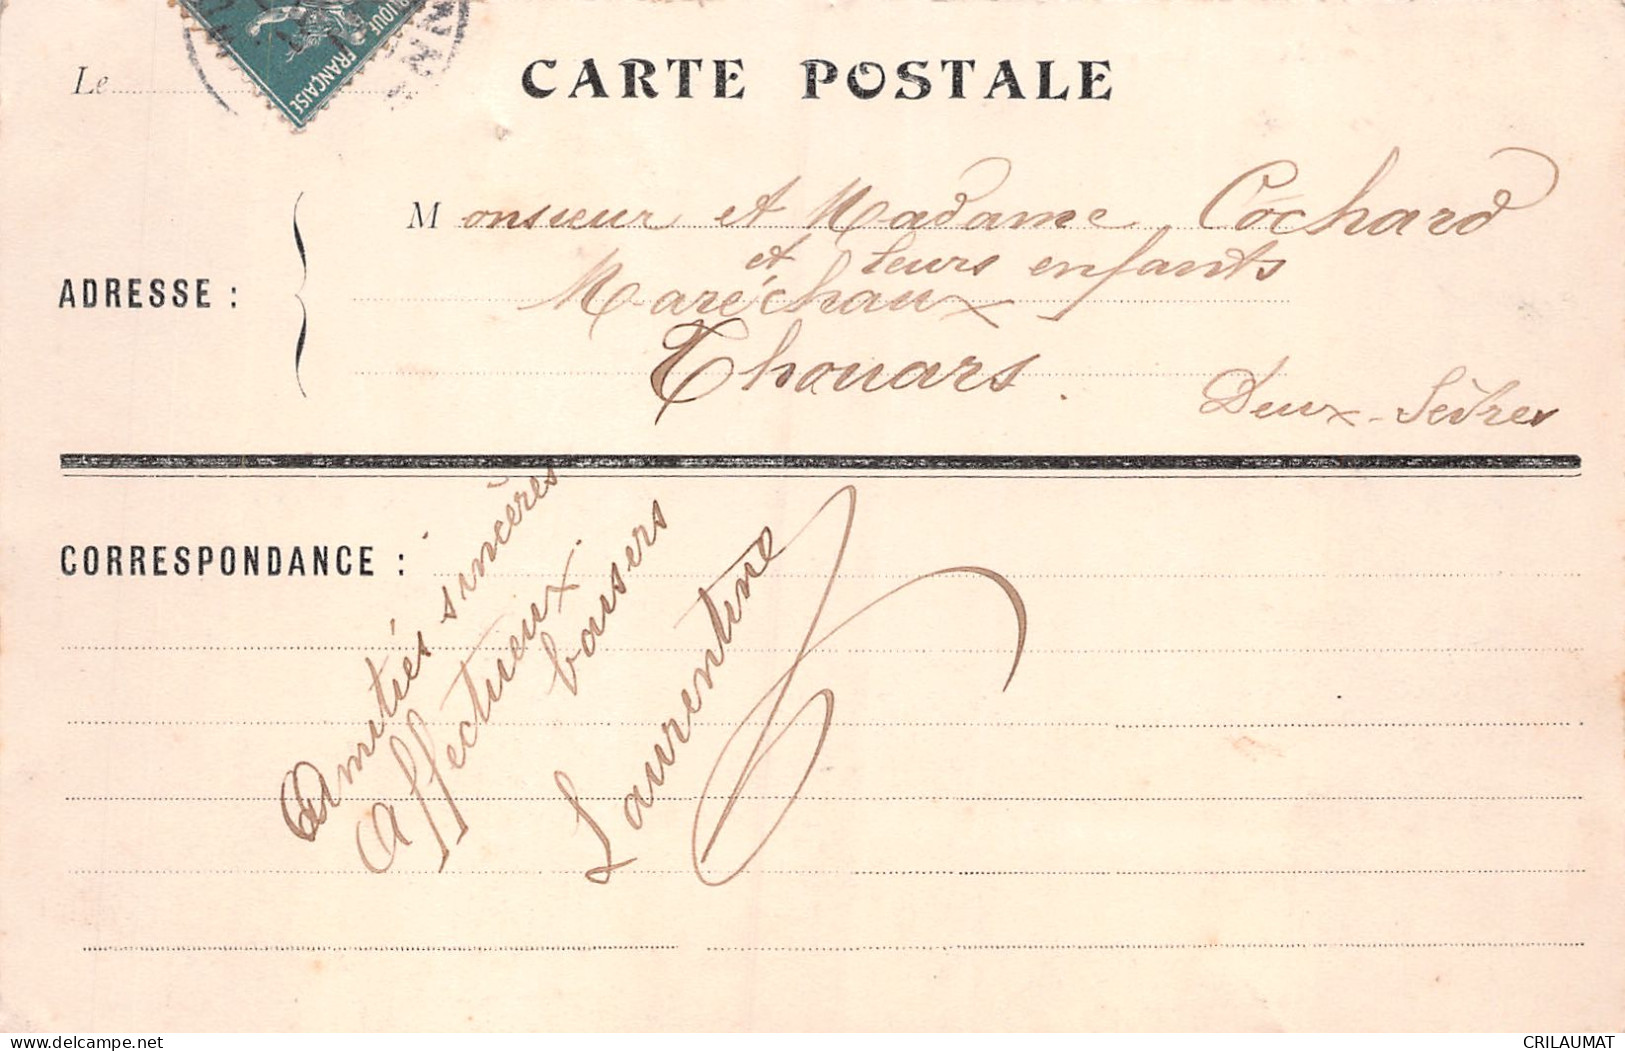 RIQUE FRANÇAISE
Le
CARTE POSTALE
Monsieur et Madame Cochard
et leurs enfants
ADRESSE :
Maréchaux
Thouars.
Deux-Sèvres
CORRESPONDANCE :
Amitiés sincères
Affectueux
baisers
Laurentine
delcampe.net
CRILAUMAT